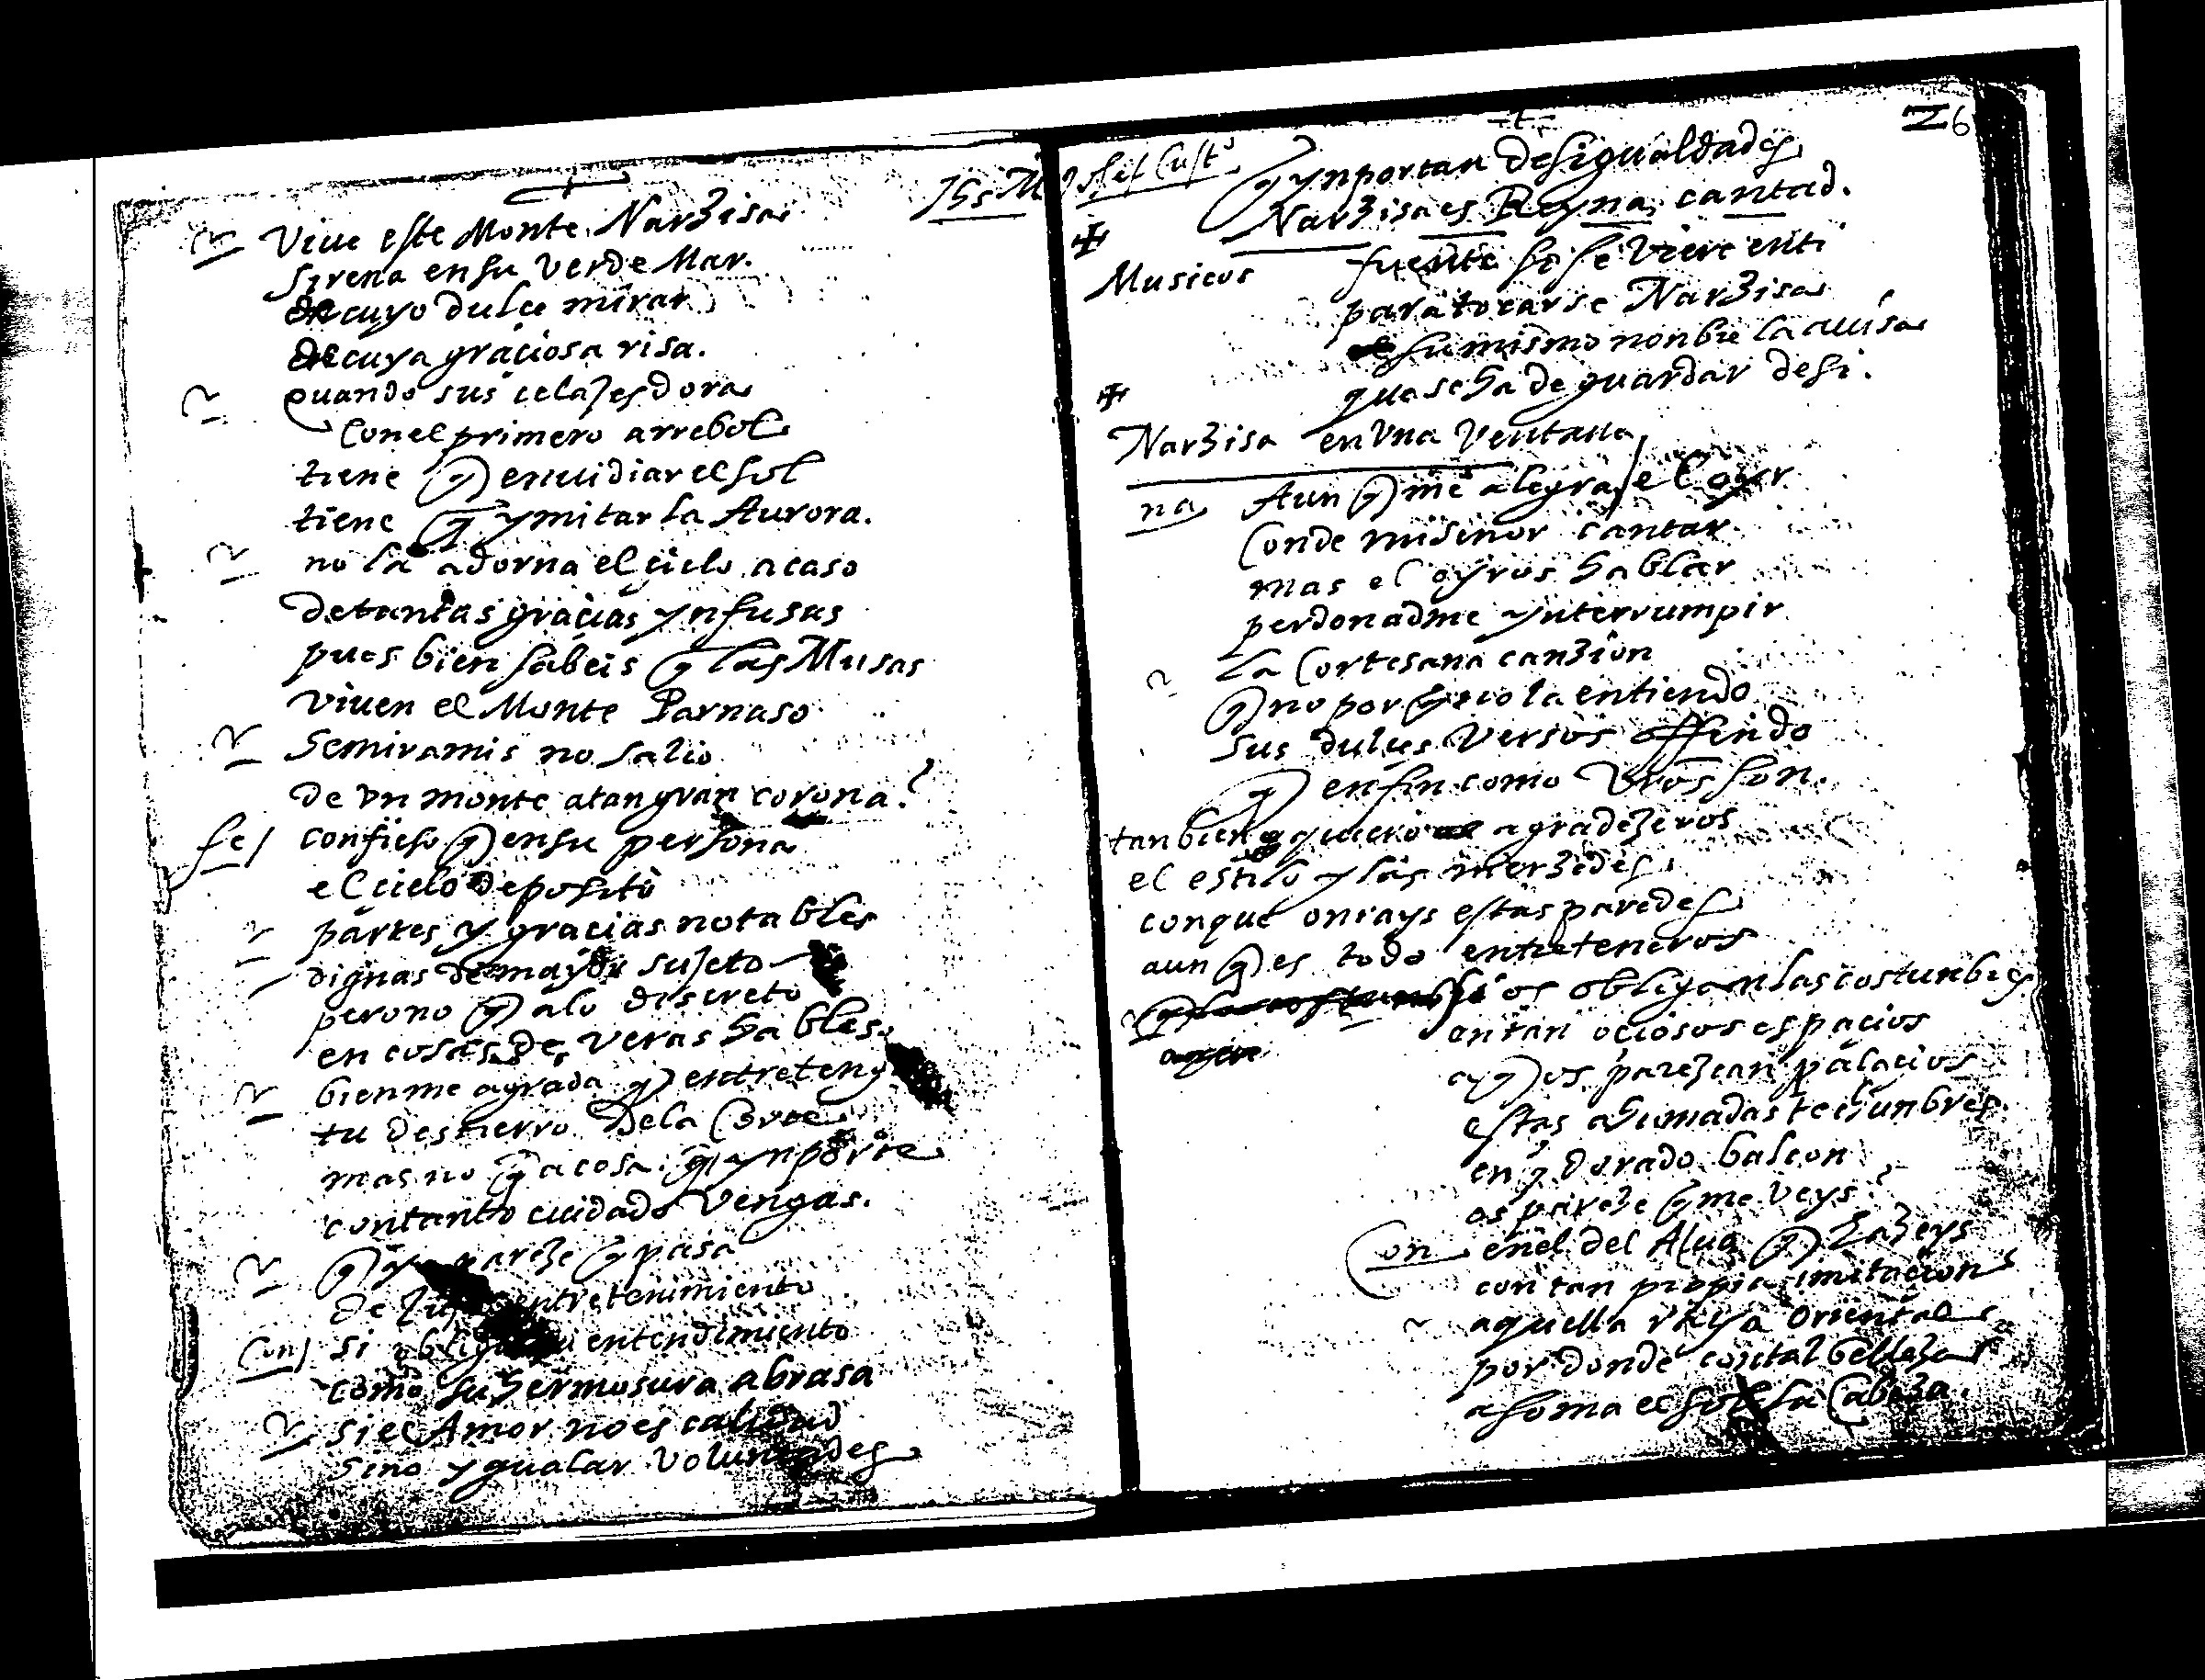 Viue este Monte Narzisa
sirena en su verde Mar.
de cuyo dulce mirar
de cuya graciosa risa.
quando sus celajes dora
Con el primero arrebol
tiene q enuidiar el sol
tiene q ymitar la Aurora.
no la adorna el cielo acaso
de tantas gracias ynfusas
pues bien sabeis q las Musas
viuen el Monte Parnaso
Semiramis no salio
de vn monte a tan gran corona?
fe/ confieso q en su persona
el cielo deposito
partes y gracias notables
dignas de mayor sujeto
pero no q a lo discreto
en cosas de veras hables.
bien me agrada q entreteng
tu destierro de la Corte
mas no q a cosa q ynporte
con tanto cuidado vengas.
q pareze q pasa
de entretenimiento
si entendimiento
como su hermosura abrasa
si el Amor no es calidad
sino ygualar voluntades
Jhs M
26
q ynportan desigualdades
Narzisa es Reyna, cantad.
Musicos fuente si se viere en ti
para tocarse Narzisa
su mismo nonbre la auisa
que se ha de guardar de si.
Narzisa en vna ventana
na Aun q me alegrase el oyr
Conde mi Señor cantar
mas el oyros hablar
perdonadme ynterrumpir
la Cortesana canzion
q no por q no la entiendo
sus dulçes versos offendo
q en fin como vros son.
tanbien quiero agradezeros
el estilo y las merzedes
con que onrays estas paredes
aun q es todo entreteneros
os obligan las costunbres
en tan ociosos espacios
a q os parezcan palacios
estas ahumadas techunbres.
en q dorado balcon
os pareze q me veys?
Con en el del Alua q hazeys
con tan propia imitacion
aquella rexa oriental
por donde con tal belleza
asoma el sol la Cabeza.